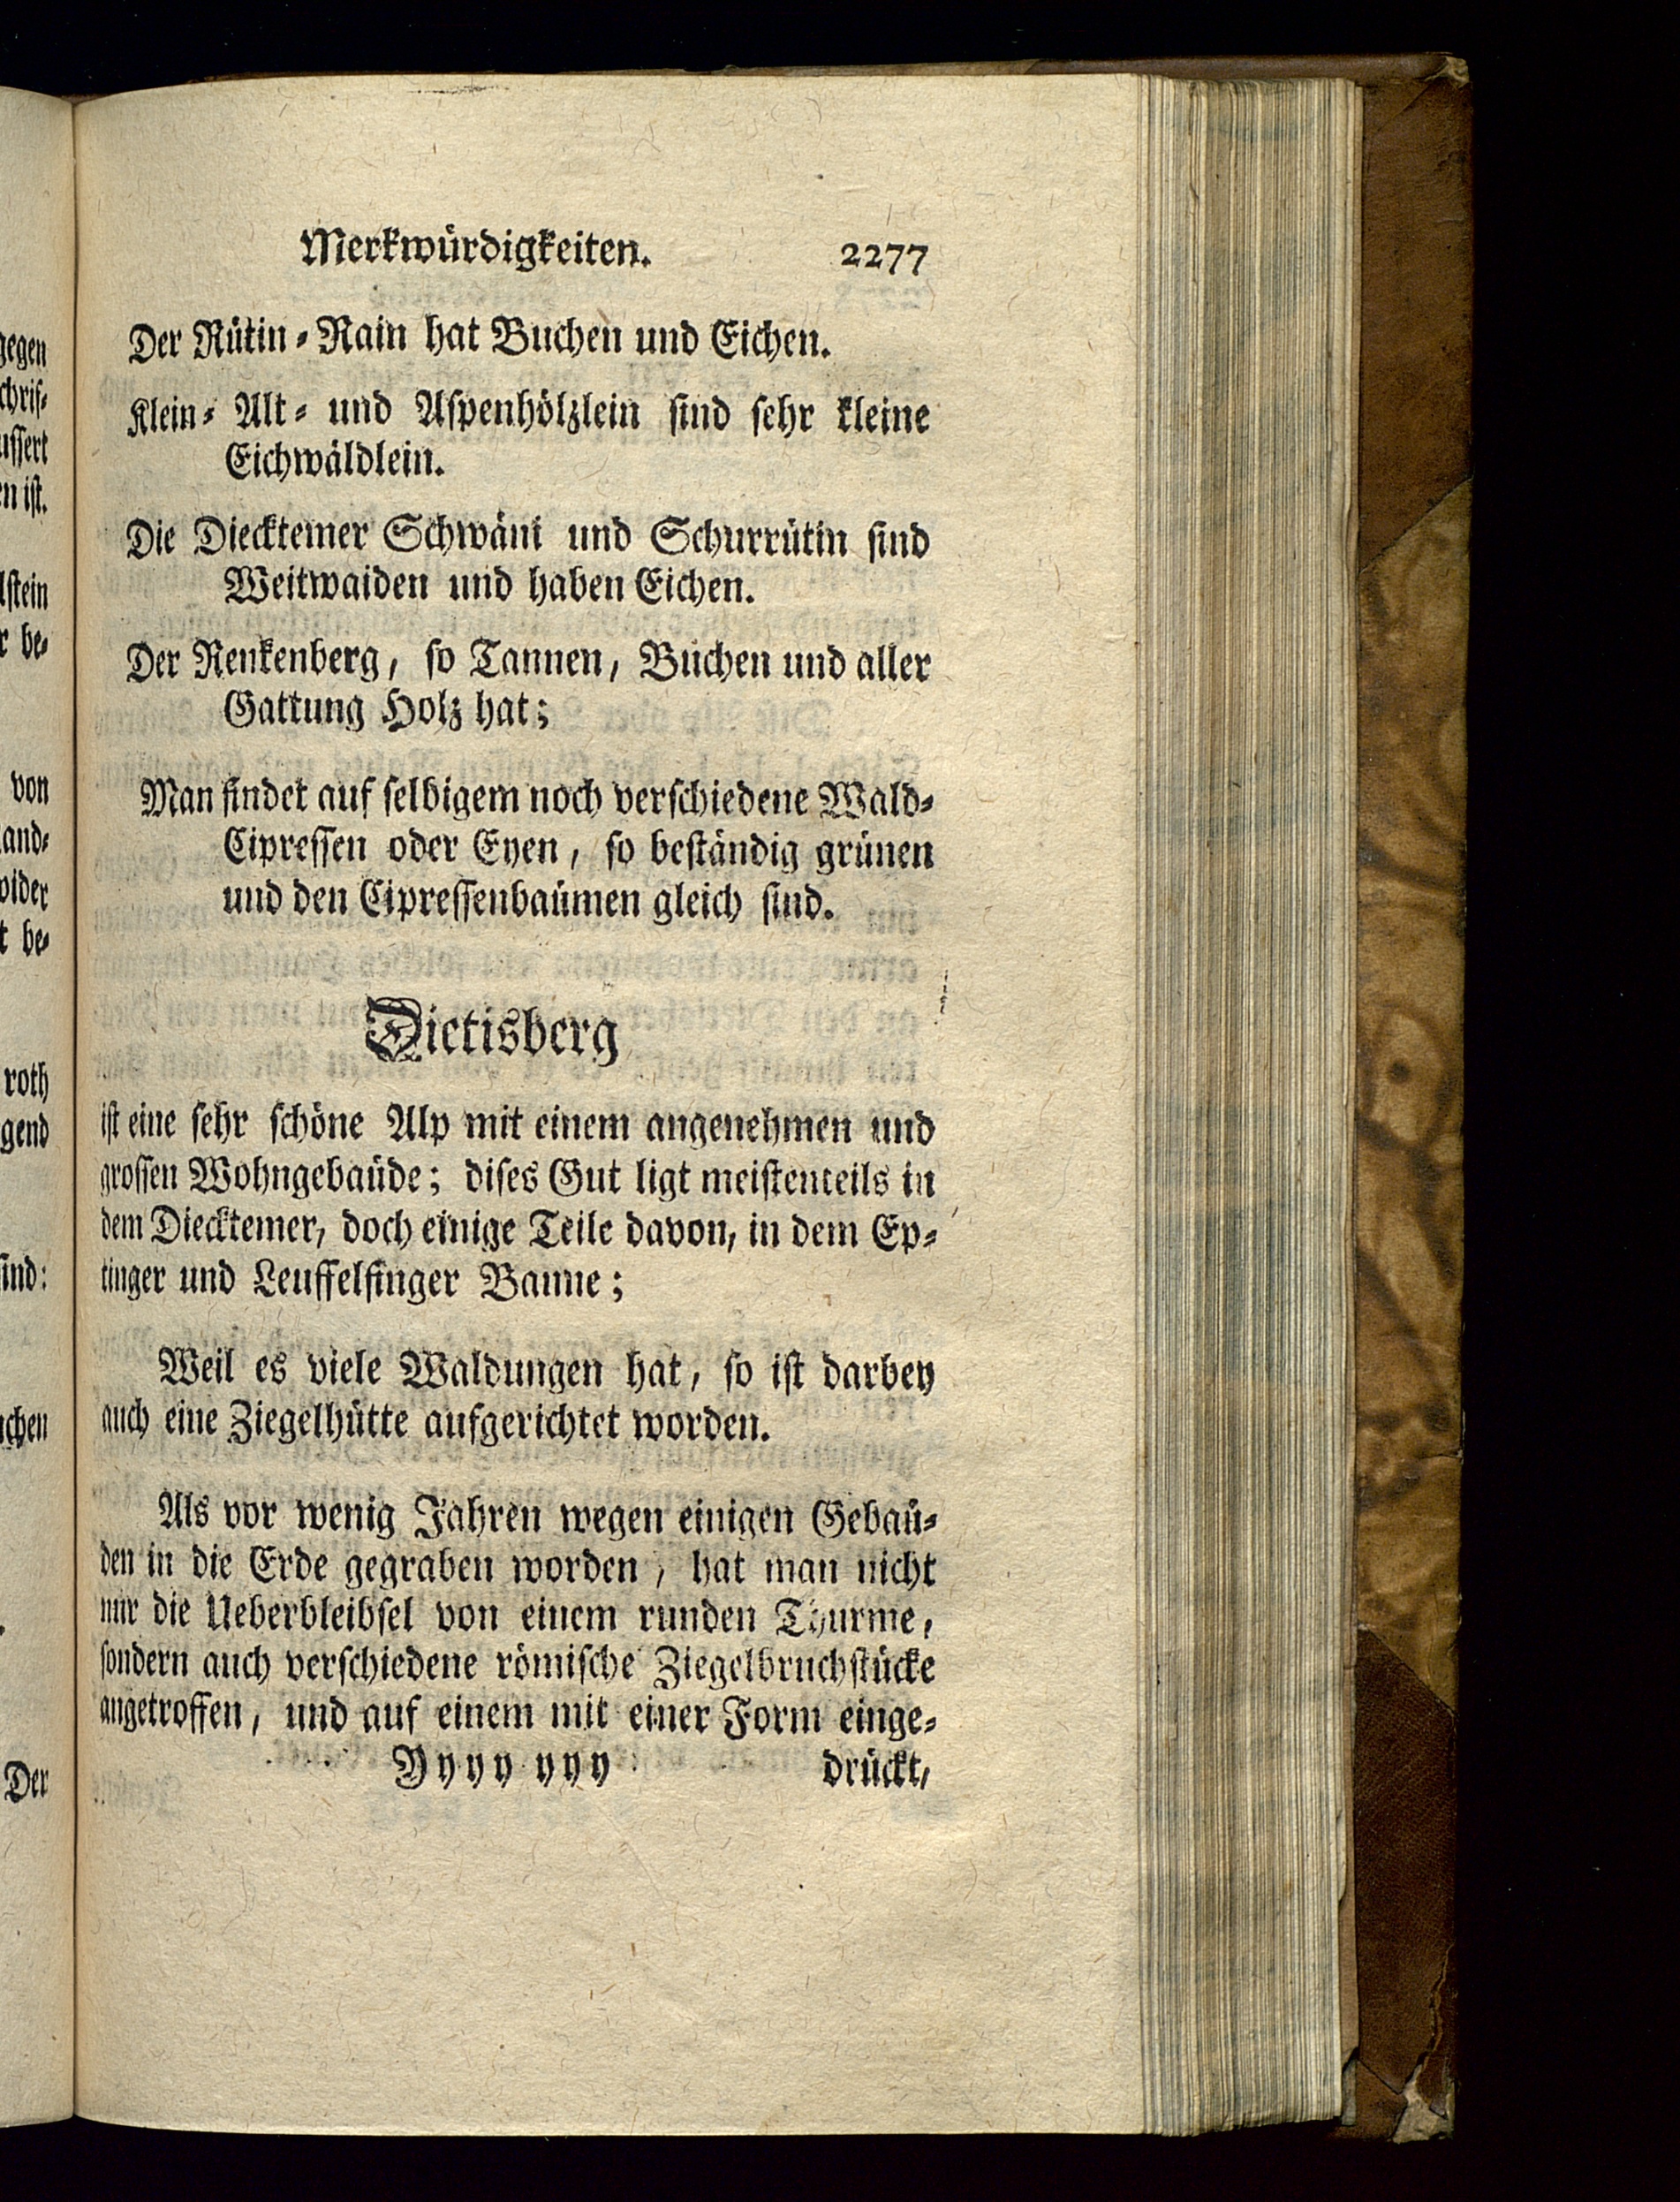 Merkwürdigkeiten. 2277
Der Rütin-Rain hat Buchen und Eichen.
Klein- Alt- und Aspenhölzlein sind sehr kleine
Eichwäldlein.
Die Diecktemer Schwäni und Schurrütin sind
Weitwaiden und haben Eichen.
Der Renkenberg, so Tannen, Buchen und aller
Gattung Holz hat;
Man findet auf selbigem noch verschiedene Wald-
Cipressen oder Eyen, so beständig grünen
und den Cipressenbaümen gleich sind.
Dietisberg
ist eine sehr schöne Alp mit einem angenehmen und
grossen Wohngebaüde; dises Gut ligt meistenteils in
dem Diecktemer, doch einige Teile davon, in dem Ep-
tinger und Leuffelfinger Banne;
Weil es viele Waldungen hat, so ist darbey
auch eine Ziegelhütte aufgerichtet worden.
Als vor wenig Jahren wegen einigen Gebaü-
den in die Erde gegraben worden, hat man nicht
nur die Ueberbleibsel von einem runden Thurme,
sondern auch verschiedene römische Ziegelbruchstücke
angetroffen, und auf einem mit einer Form einge-
Yyyy yyy drückt,
gegen
ussert
en ist.
lstein
r be-
von
wider
t be-
roth
gend
sind:
Der